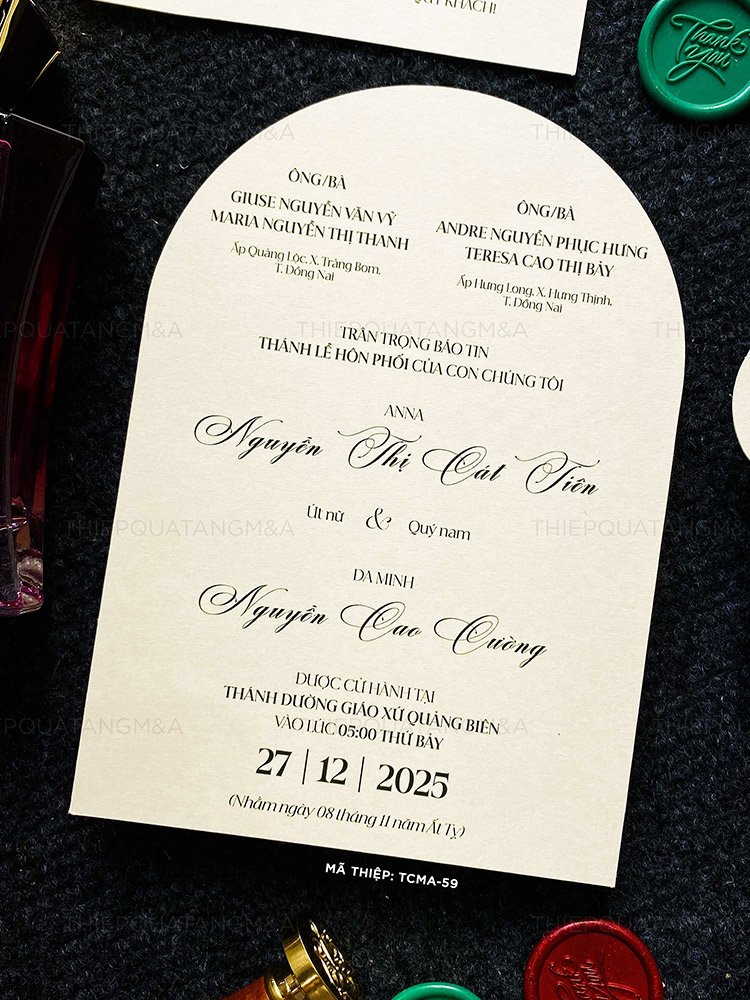 QUÝ KHÁCH!
Thank
you
THIEPQUATANGM&A
THIEPQUATANGM&A
ÔNG/BÀ
GIUSE NGUYỄN VĂN VỸ
MARIA NGUYỄN THỊ THANH
Ấp Quảng Lộc, X. Trảng Bom,
T. Đồng Nai
ÔNG/BÀ
ANDRE NGUYỄN PHỤC HƯNG
TERESA CAO THỊ BẢY
Ấp Hưng Long, X. Hưng Thịnh,
T. Đồng Nai
THIEPQUATANGM&A
TRÂN TRỌNG BÁO TIN
THÁNH LỄ HÔN PHỐI CỦA CON CHÚNG TÔI
ANNA
Nguyễn Thị Cát Tiên
Út nữ & Quý nam
THIEPQUATANGM&A
THIEPQUATANGM&A
ĐA MINH
Nguyễn Cao Cường
ĐƯỢC CỬ HÀNH TẠI
THÁNH ĐƯỜNG GIÁO XỨ QUẢNG BIÊN
VÀO LÚC 05:00 THỨ BẢY
THIEPQUATANGM&A
27 | 12 | 2025
(Nhằm ngày 08 tháng 11 năm Ất Tỵ)
MÃ THIỆP: TCMA-59
THIEPQUATANGM&A
THIEPQUATANGM&A
Thank
you